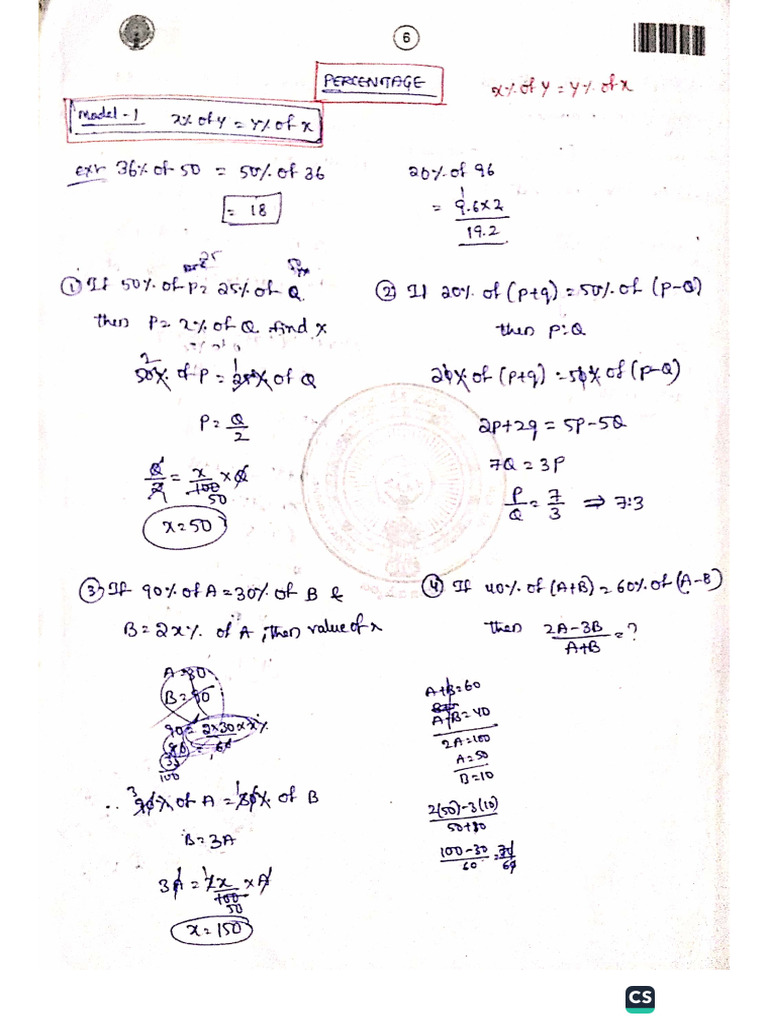 6
PERCENTAGE
x% of y = y% of x
Model-1 x% of y = y% of x
ex:- 36% of 50 = 50% of 36
= 18
20% of 96
= 9.6×2
19.2
① If 50% of P = 25% of Q
then P = x% of Q find x
50% of P = 25% of Q
P = Q/2
Q/2 = x/100 × Q
50
x = 50
② If 20% of (p+q) = 50% of (P-Q)
then P:Q
20% of (p+q) = 50% of (P-Q)
2p+2q = 5P-5Q
7Q = 3P
P/Q = 7/3 ⇒ 7:3
③ If 90% of A = 30% of B &
B = 2x% of A, then value of x
A = 30
B = 90
90 = 2×30×x%
∴ 90% of A = 30% of B
B = 3A
3A = 2x/100 × A
50
x = 150
④ If 40% of (A+B) = 60% of (A-B)
then 2A-3B/A+B = ?
A+B = 60
A+B = 40
2A = 100
A = 50
B = 10
2(50)-3(10)
50+80
100-30/60 = 70/60
CS